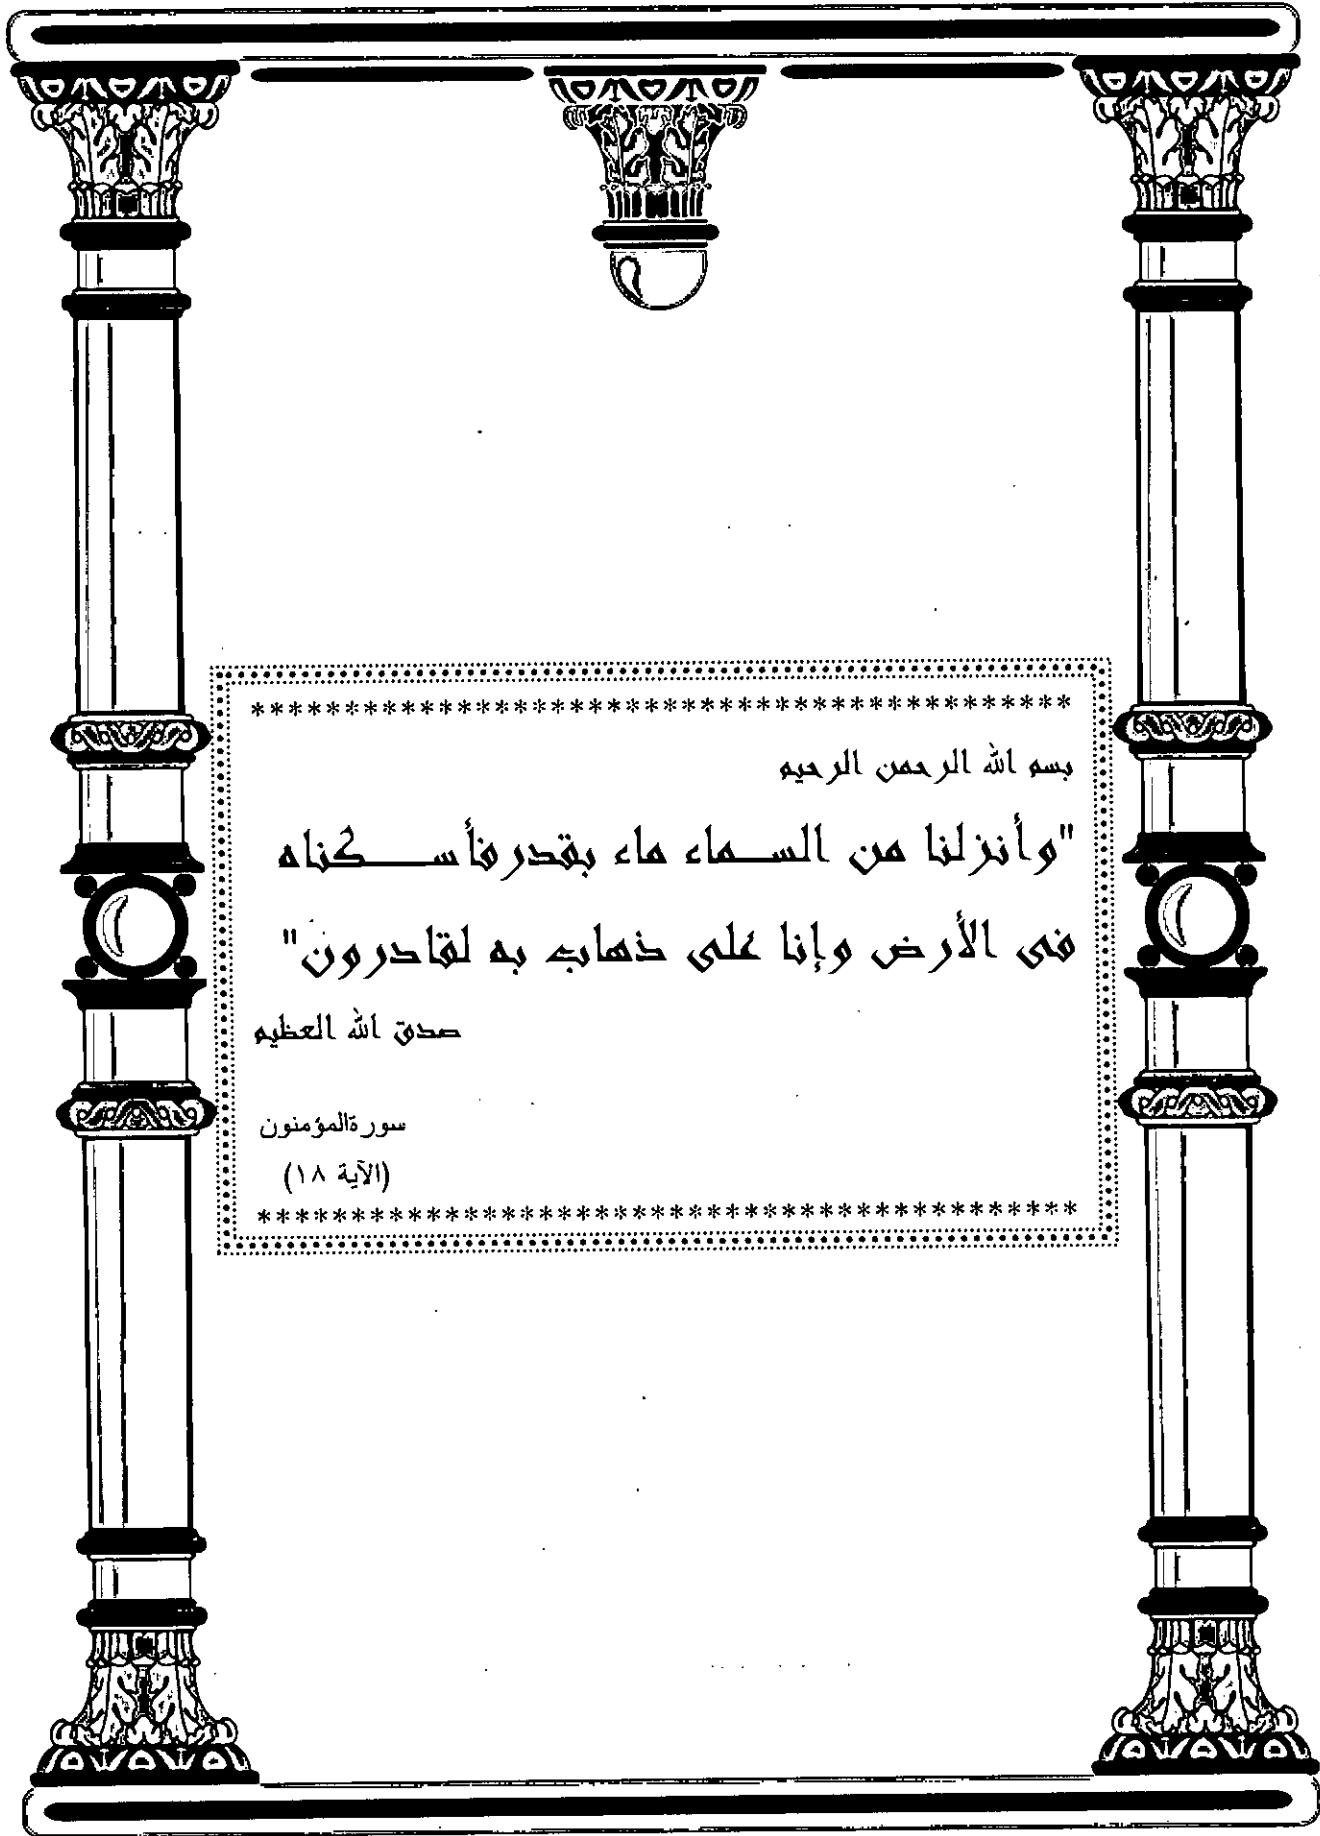 بسم الله الرحمن الرحيم
"وأنزلنا من السماء ماء بقدر فأسكناه
فى الأرض وإنا على ذهاب به لقادرون"
صدق الله العظيم
سورةالمؤمنون
(الآية ١٨)